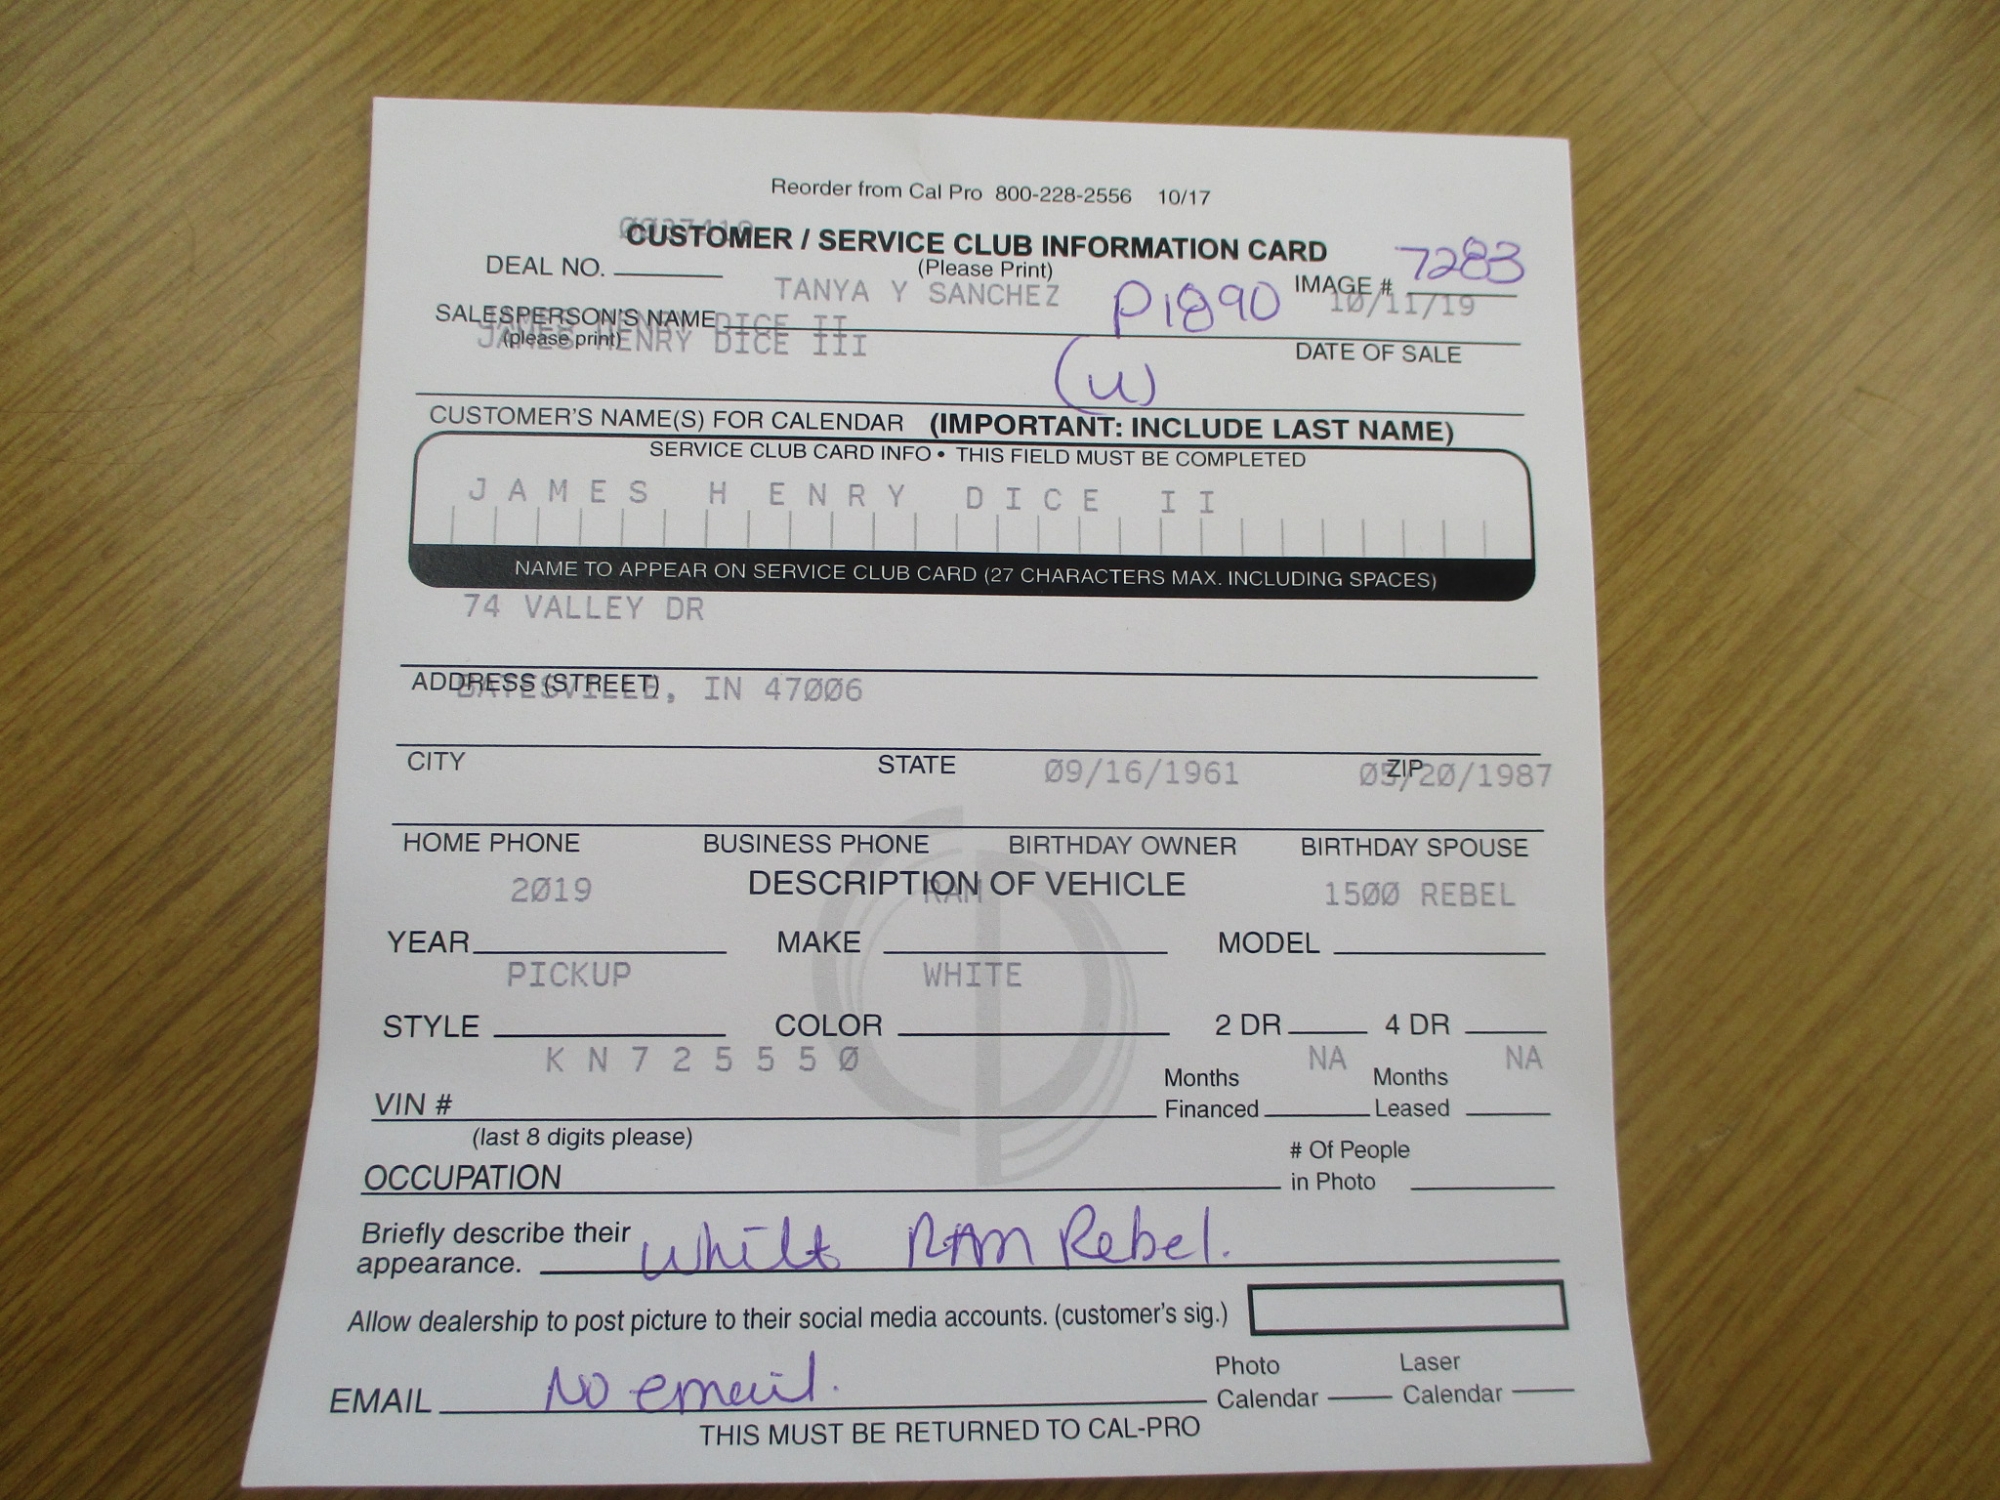 Reorder from Cal Pro 800-228-2556 10/17
CUSTOMER / SERVICE CLUB INFORMATION CARD
DEAL NO. (Please Print) IMAGE # 7283
TANYA Y SANCHEZ P1890 10/11/19
SALESPERSON'S NAME JAMES HENRY DICE II
(please print) JAMES HENRY DICE III DATE OF SALE
(u)
CUSTOMER'S NAME(S) FOR CALENDAR (IMPORTANT: INCLUDE LAST NAME)
SERVICE CLUB CARD INFO • THIS FIELD MUST BE COMPLETED
JAMES HENRY DICE II
NAME TO APPEAR ON SERVICE CLUB CARD (27 CHARACTERS MAX. INCLUDING SPACES)
74 VALLEY DR
ADDRESS (STREET) BATESVILLE, IN 47006
CITY STATE ZIP
09/16/1961 05/20/1987
HOME PHONE BUSINESS PHONE BIRTHDAY OWNER BIRTHDAY SPOUSE
DESCRIPTION OF VEHICLE
2019 RAM 1500 REBEL
YEAR MAKE MODEL
PICKUP WHITE
STYLE COLOR 2 DR 4 DR
KN725550 NA NA
VIN # Months Financed Months Leased
(last 8 digits please)
OCCUPATION # Of People in Photo
Briefly describe their
appearance. White RAM Rebel.
Allow dealership to post picture to their social media accounts. (customer's sig.)
EMAIL No email. Photo Calendar Laser Calendar
THIS MUST BE RETURNED TO CAL-PRO